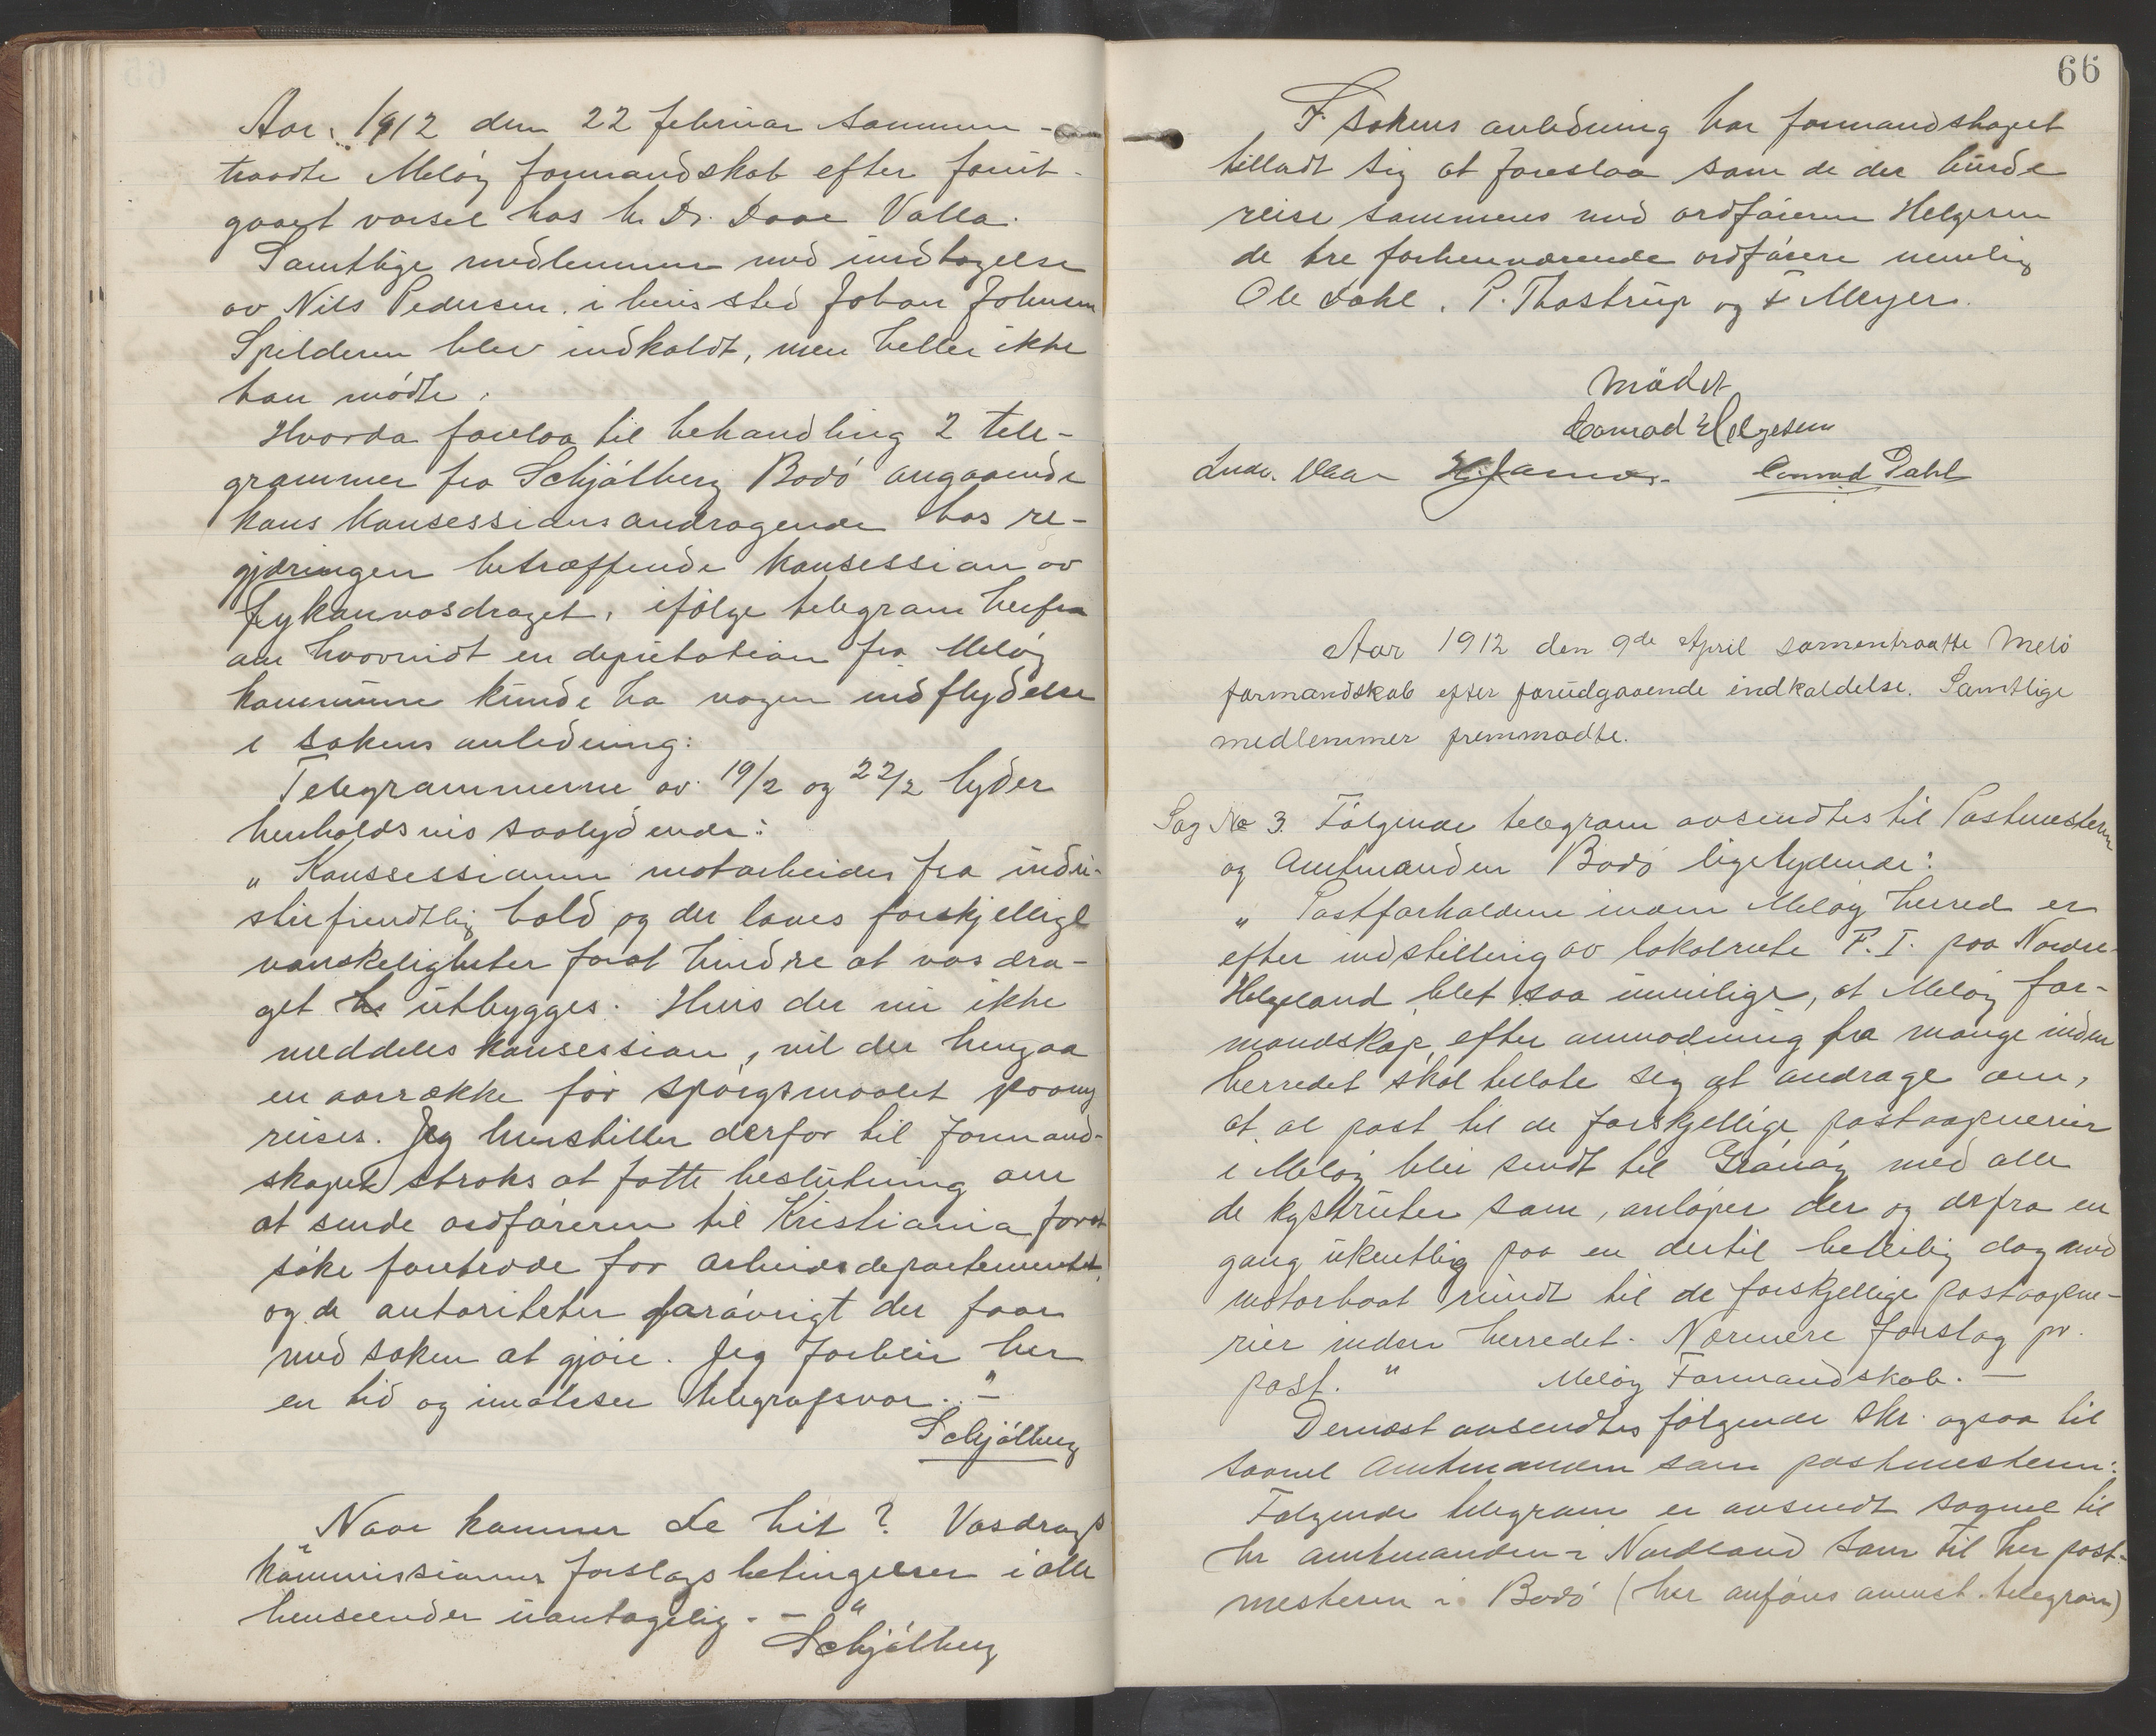 Aar 1912 den 22 februar sammen-
traadte Meløy formandskab efter forut-
gaaet varsel hos hr Dr. Daae Valla.
Samtlige medlemmer med indtagelse
av Nils Pedersen. i hvis sted Johan Johnsen
Spilderen blev indkaldt, men heller ikke
han mødte.
Hvorda forelaa til behandling 2 tele-
grammer fra Schjølberg Bodø angaaende
hans konsessionsandragende hos re-
gjæringen betræffende konsession av
Fykanvasdraget, ifølge telegram herfra
om hvorvidt en deputation fra Meløy
kommune kunde ha nogen indflydelse
i sakens anledning:
Telegrammerne av 19/2 og 22/2 lyder
henholdsvis saalydende:
„ Konssessionen motarbeides fra indu-
strifiendtlig hold og der laves forskjellige
vanskeligheter forat hindre at vasdra-
get utbygges. Hvis der nu ikke
meddeles konsession, vil der hengaa
en aarrække før spørgsmaalet paany
reises. Jeg henstiller derfor til formand-
skapet straks at fatte beslutning om
at sende ordføreren til Kristiania forat
søke foretræde for arbeidsdepartementet,
og de autoriteter forøvrigt der faar
med saken at gjøre. Jeg forblir her
en tid og imøteser telegrafsvar. " –
Schjølberg
Naar kommer De hit? Vasdrags
kommissionens forslags betingelser i alle
henseender uantagelig. – "
Schjølberg
66
I sakens anledning har formandskapet
tilladt sig at foreslaa som de der burde
reise sammens med ordføreren Helgesen
de tre forhenværende ordførere nemlig
Ole Dahl, P. Thostrup og F Meyer.
Mødet
Conrad Helgesen
Ludv. Daae Conrad Dahl
Aar 1912 den 9de April samentraatte Melø
formandskab efter forudgaaende indkaldelse. Samtlige
medlemmer fremmødte.
Sag No 3. Følgende telegram avsendtes til Postmesteren
og Amtmanden Bodø ligelydende:
„ Postforholdene inom Meløy herred er
efter indstilling av lokalrute F. I. paa Nordre
Helgeland blet saa uvillige, at Meløy for-
mandskap, efter anmodning fra mange inden
herredet skal tillate sig at andrage om,
at al post til de forskjellige postaapnerier
i Meløy blir sendt til Grønøy med alle
de kystruter som, anløper der og derfra en
gang ukentlig paa en dertil beleilig dag med
motorbaat rundt til de forskjellige postaapne-
rier inden herredet. Nærmere forslag pr.
post. " Meløy Formandskab. –
Dernæst avsendtes følgende skr. ogsaa til
saavel Amtmanden som postmesteren:
Følgende telegram er avsendt saavel til
hr amtmanden i Nordland som til hr post-
mesteren i Bodø (her anføres telegram)